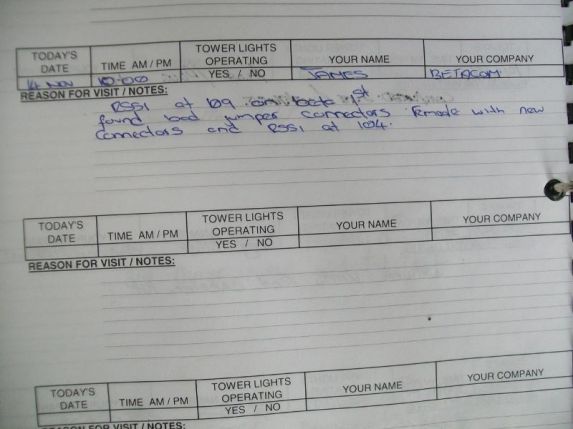 TODAY'S DATE TIME AM / PM TOWER LIGHTS OPERATING YOUR NAME YOUR COMPANY
14 NOV 10:00 YES / NO JAMES BETACOM
REASON FOR VISIT / NOTES:
RSSI at 109 on beta 1st
found bad jumper connectors Remade with new
connectors and RSSI at 104.
TODAY'S DATE TIME AM / PM TOWER LIGHTS OPERATING YOUR NAME YOUR COMPANY
YES / NO
REASON FOR VISIT / NOTES:
TODAY'S DATE TIME AM / PM TOWER LIGHTS OPERATING YOUR NAME YOUR COMPANY
YES / NO
REASON FOR VISIT / NOTES: